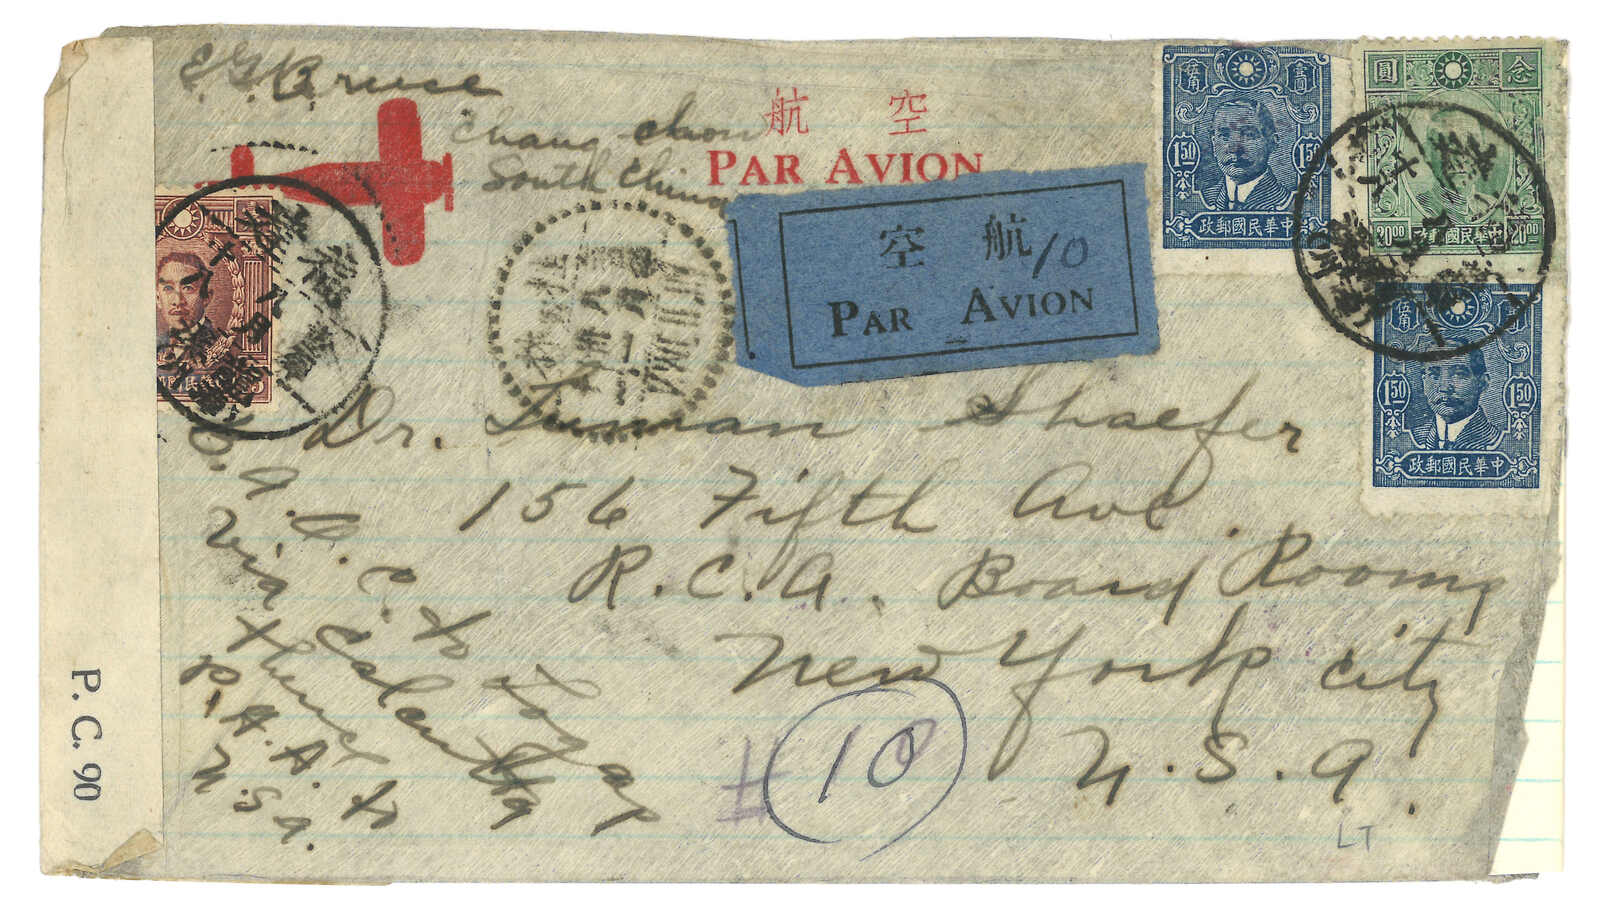 E. G. Bruce
Chang-chow
South China
航 空
PAR AVION
空 航
10
PAR AVION
伍角 壹圓
1.50 1.50
政郵國民華中
圓 念
20.00 20.00
政郵國民華中
伍角
1.50 1.50
政郵國民華中
Dr. Luman Shaefer
156 Fifth Ave.
R.C.A. Board Rooms
New York City
U.S.A.
via Calcutta
thence
P.A.A. to
U.S.A.
# 10
LT
P. C. 90